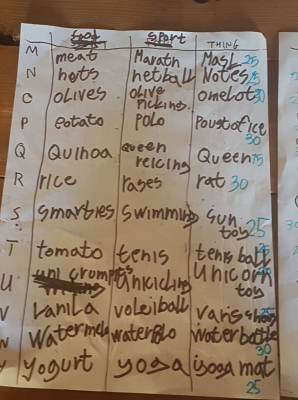 food sport THING
M meat Marath Mask 25
N nots netball Notes 25
O OLIVES OLIVE PICKING omelot 30
P Potato POLO Poustofice 30
Q Quinoa Queen reicing Queen 15
R rice rases rat 30
S smarties swimming sun toy 25
T tomato tenis tenis ball
U uni crumpets Unicicling Unicorn toy
V Vanila voleiball vans shoes
W Watermelo waterPolo waterbattle 30
Y yogurt yoga yoga mat 25